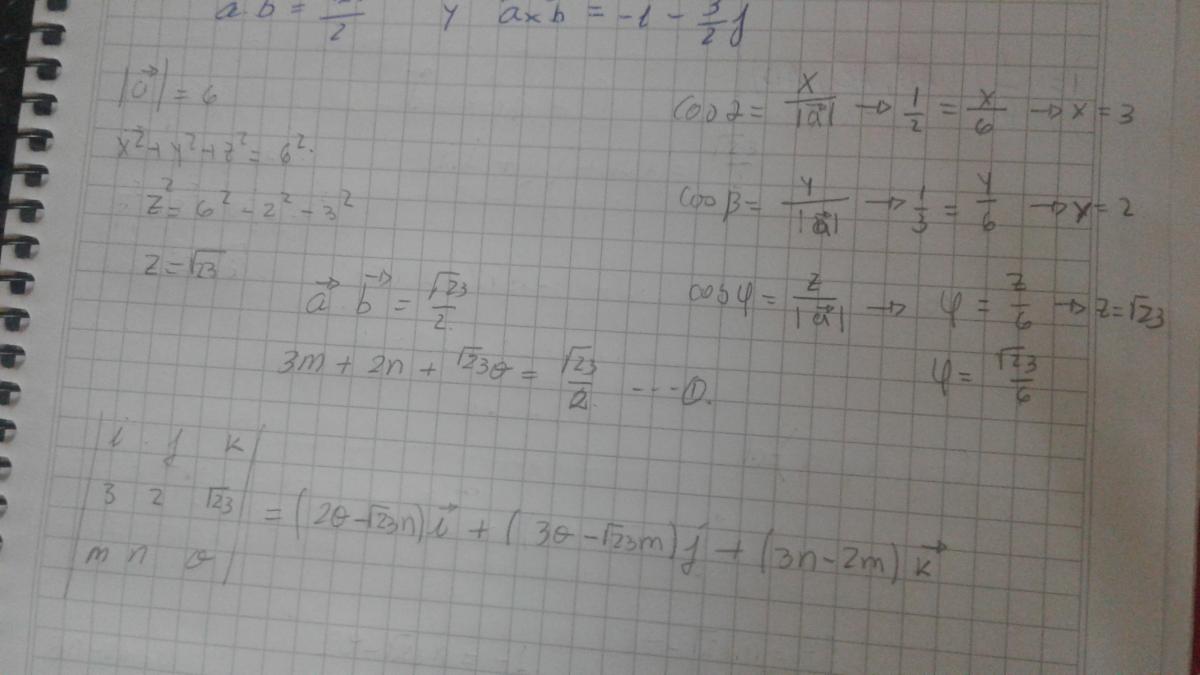 a·b = /2 y axb = -i - 3/2 j
|a⃗| = 6
x² + y² + z² = 6².
z² = 6² - 2² - 3²
z = √23
cos α = x/|a⃗| → 1/2 = x/6 → x = 3
cos β = y/|a⃗| → 1/3 = y/6 → y = 2
cos φ = z/|a⃗| → φ = z/6 → z = √23
φ = √23/6
a⃗ · b⃗ = √23/2
3m + 2n + √23θ = √23/2 ---①.
|i j k|
|3 2 √23| = (2θ - √23n) i⃗ + (3θ - √23m) j⃗ + (3n - 2m) k⃗
|m n θ|